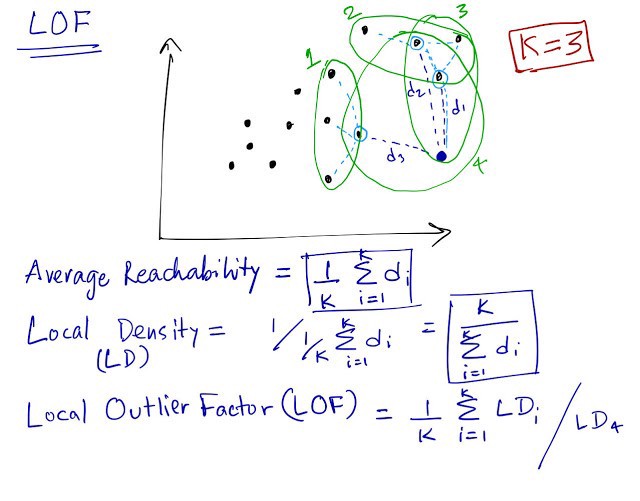 LOF
2
3
K=3
1
d2
d1
d3
4
Average Reachability = 1/K Σ(i=1 to K) di
Local Density = 1 / 1/K Σ(i=1 to K) di = K / Σ(i=1 to K) di
(LD)
Local Outlier Factor (LOF) = 1/K Σ(i=1 to K) LDi / LD4